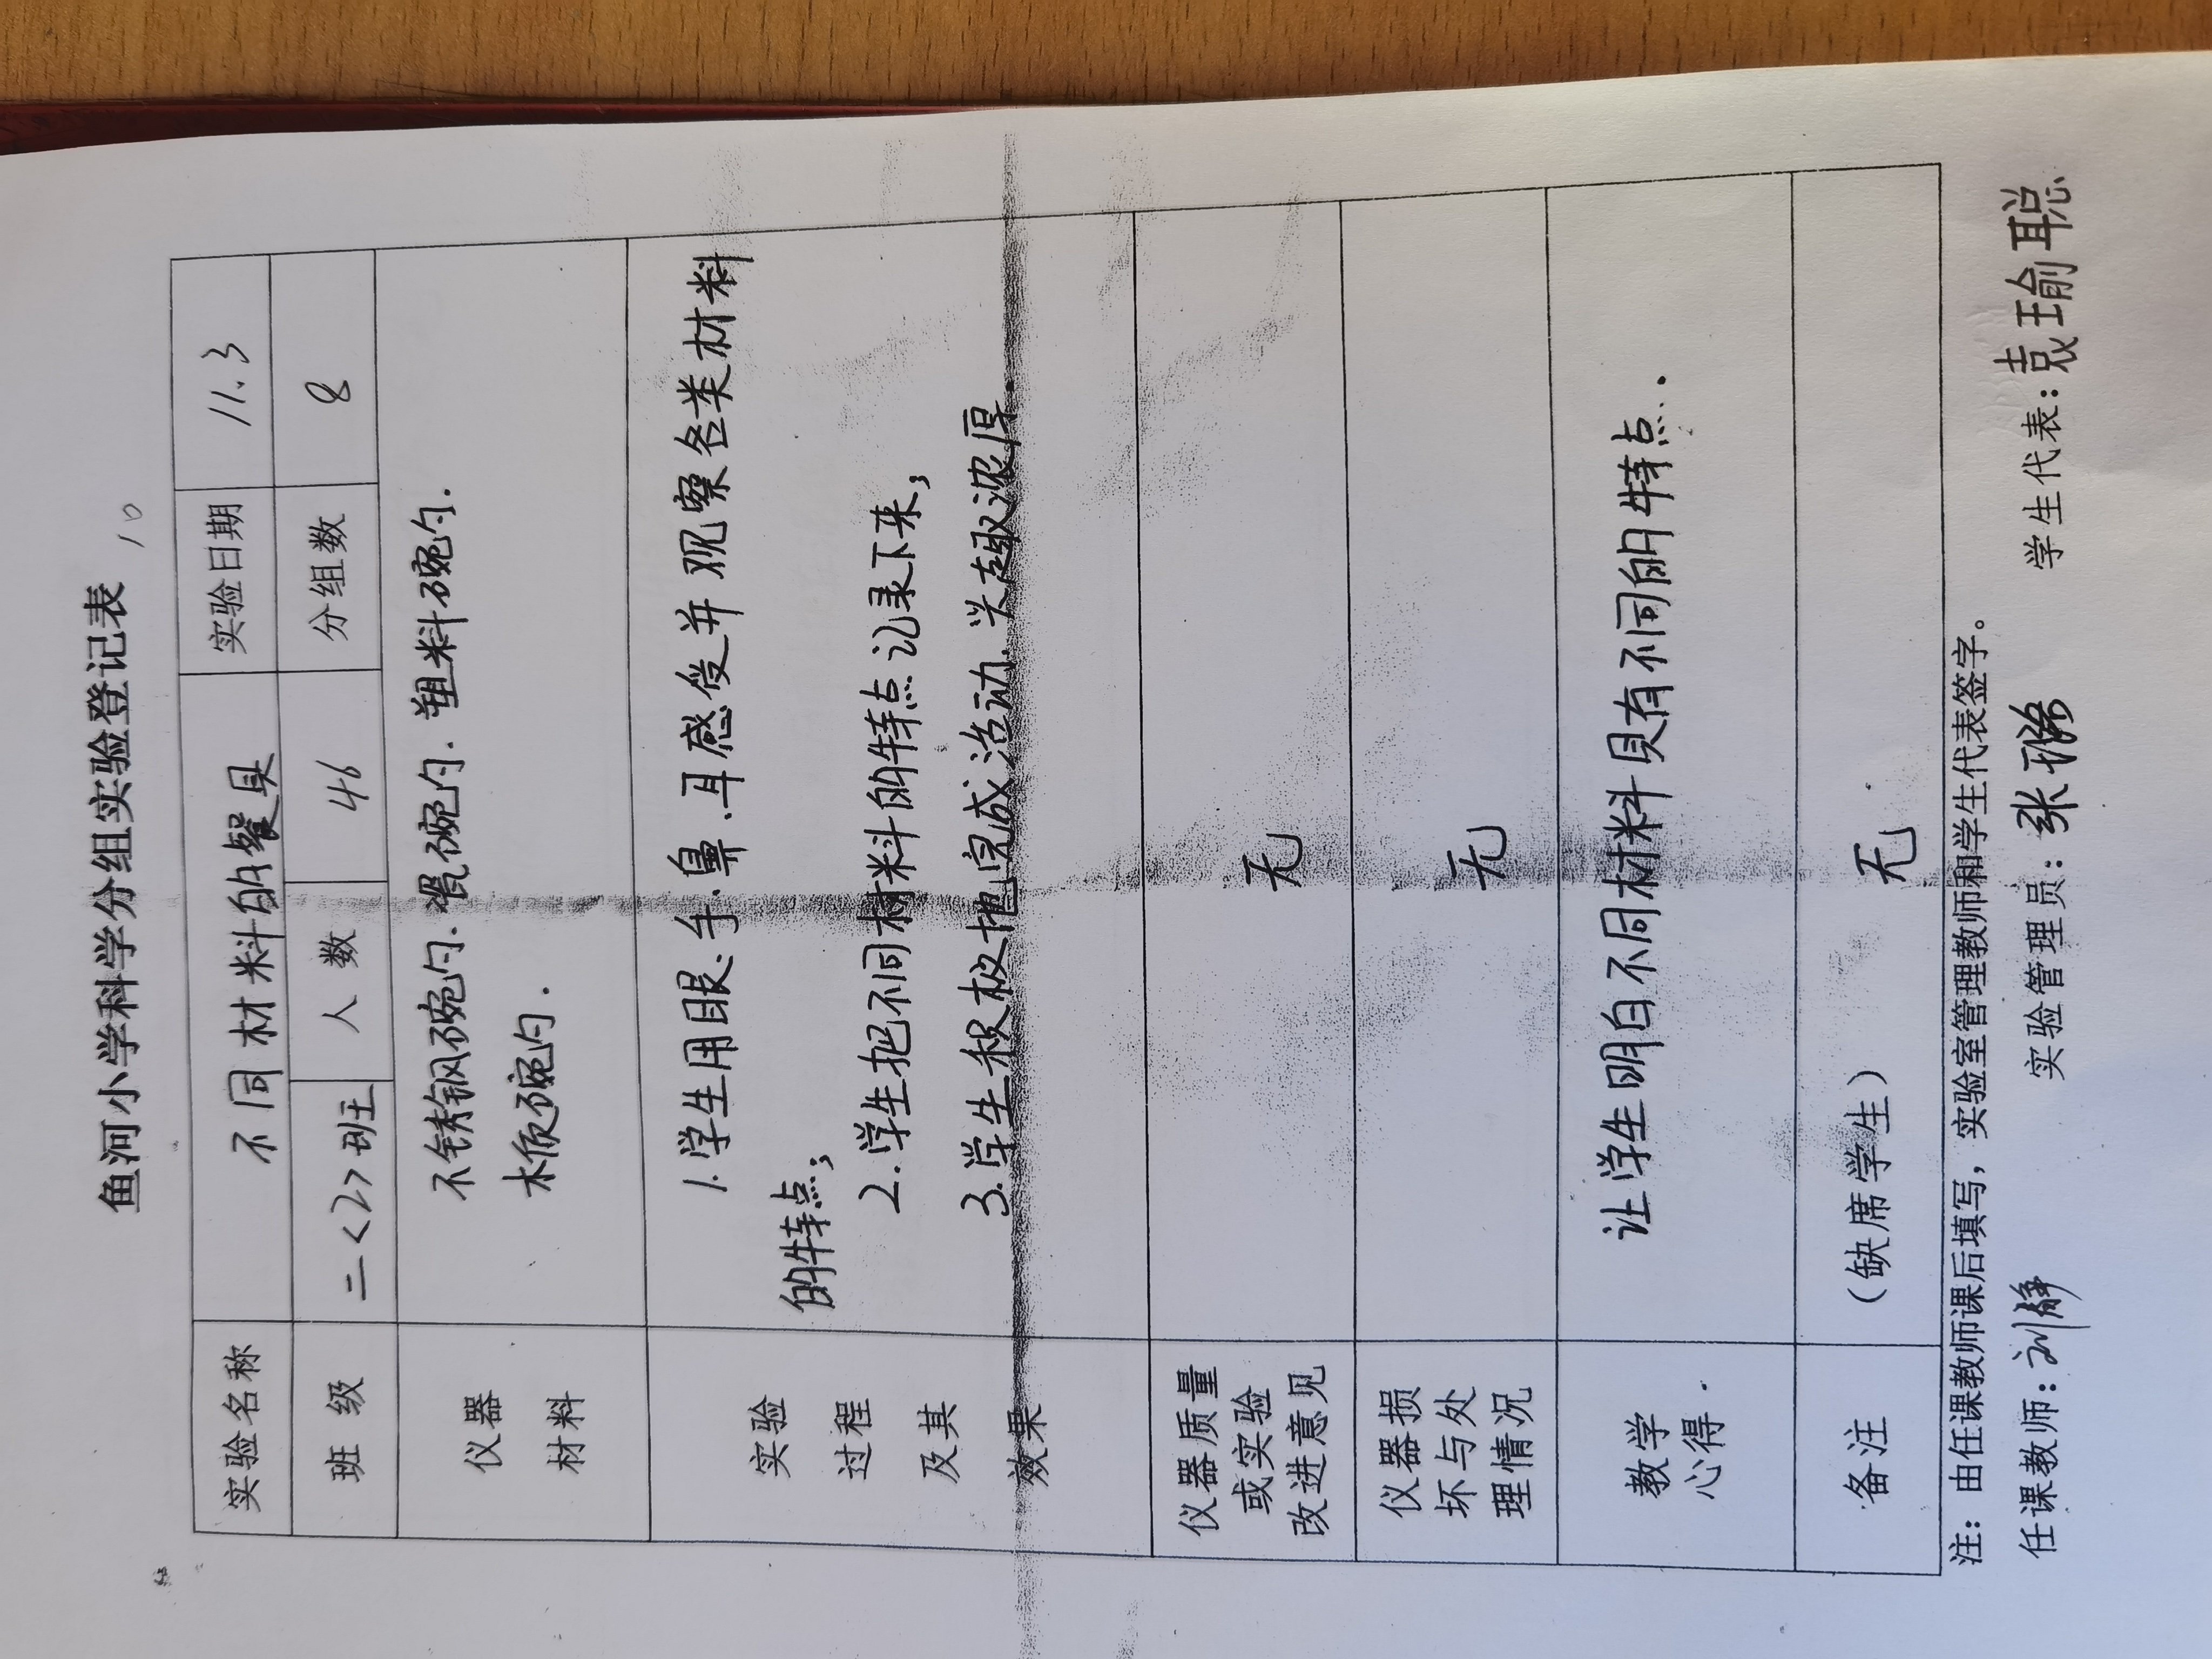 鱼河小学科学分组实验登记表
10
实验名称 不同材料的餐具 实验日期 11.3
班级 二<2>班 人数 46 分组数 8
仪器
材料
不锈钢碗勺.瓷碗勺.塑料碗勺.
木质碗勺.
实验
过程
及其
效果
1.学生用眼.手.鼻.耳感受并观察各类材料
的特点;
2.学生把不同材料的特点记录下来;
3.学生积极地完成活动.兴趣浓厚.
仪器质量
或实验
改进意见
无
仪器损
坏与处
理情况
无
教学
心得
让学生明白不同材料具有不同的特点.
备注
(缺席学生) 无
注：由任课教师课后填写，实验室管理教师和学生代表签字。
任课教师：刘静 实验管理员：张 学生代表：袁瑜聪